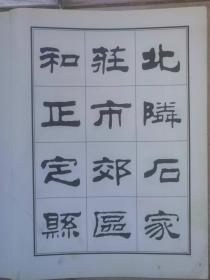 北隣石家
莊市郊區
和正定縣